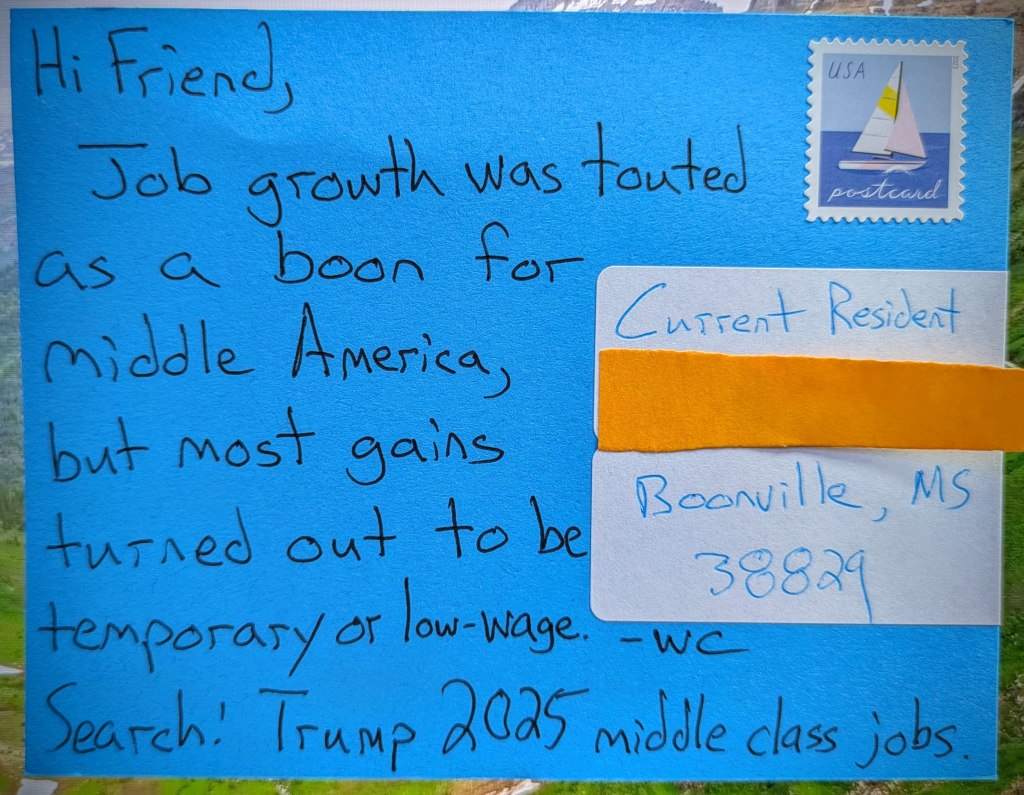 Hi Friend,
Job growth was touted
as a boon for
middle America,
but most gains
turned out to be
temporary or low-wage. -WC
Search! Trump 2025 middle class jobs.
USA
2023
postcard
Current Resident
Boonville, MS
38829